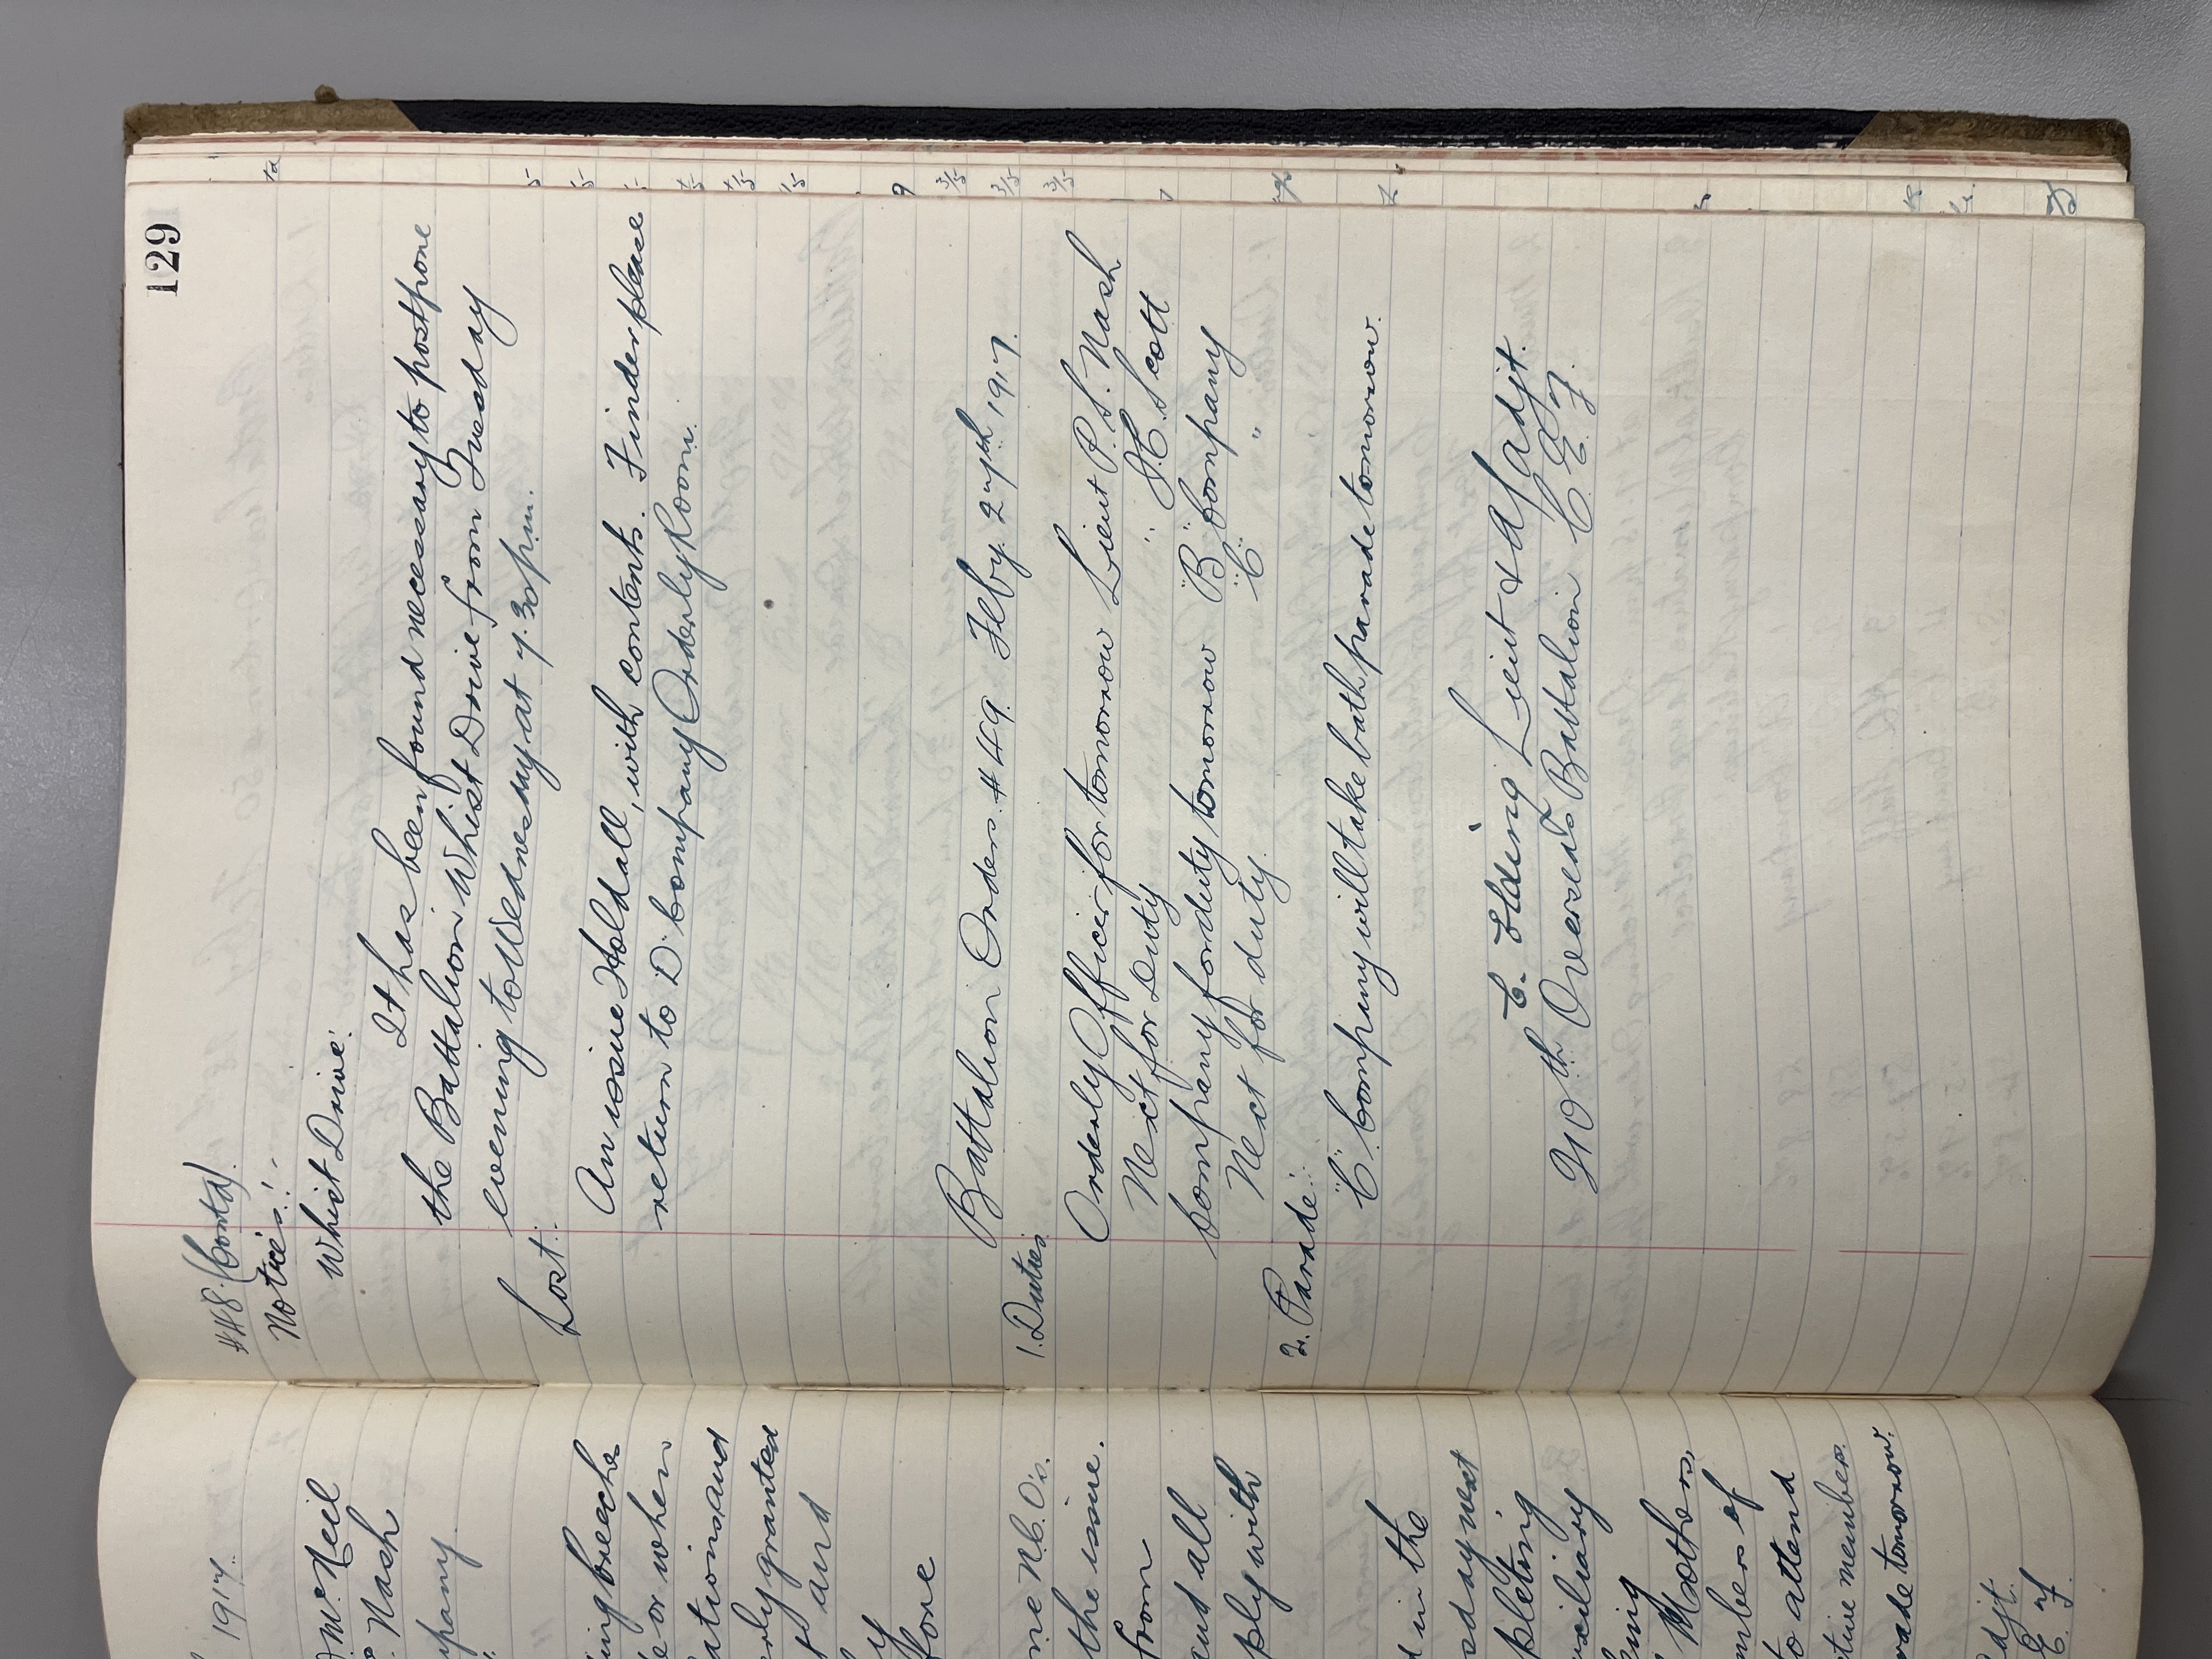 129
448 (Contd).
Notices:-
Whist Drive:
It has been found necessary to postpone
the Battalion Whist Drive from Tuesday
evening to Wednesday at 7.30 p.m.
Lost:
An issue Holdall, with contents. Finder please
return to D. Company Orderly Room.
Battalion Orders. # 449. Feby. 27th 1917.
1. Duties
Orderly Officer for tomorrow Lieut P. S. Nash
Next for Duty " S.C. Scott
Company for duty tomorrow "B" Company
Next for duty. "C" "
2. Parade:
"C" Company will take bath parade tomorrow.
C. Elding Lieut & a/ adjt.
210th Overseas Battalion C. E. F.
1917.
McNeil
Nash
mpany.
ing breeche
e or when
ations and
erly granted
and
y
fore
me N.C.O's.
the issue.
from
and all
ply with
d in the
sday next
pleting
uxiliary
Mothers
mbers of
to attend
ctive members.
rade tomorrow.
adjt.
E. F.